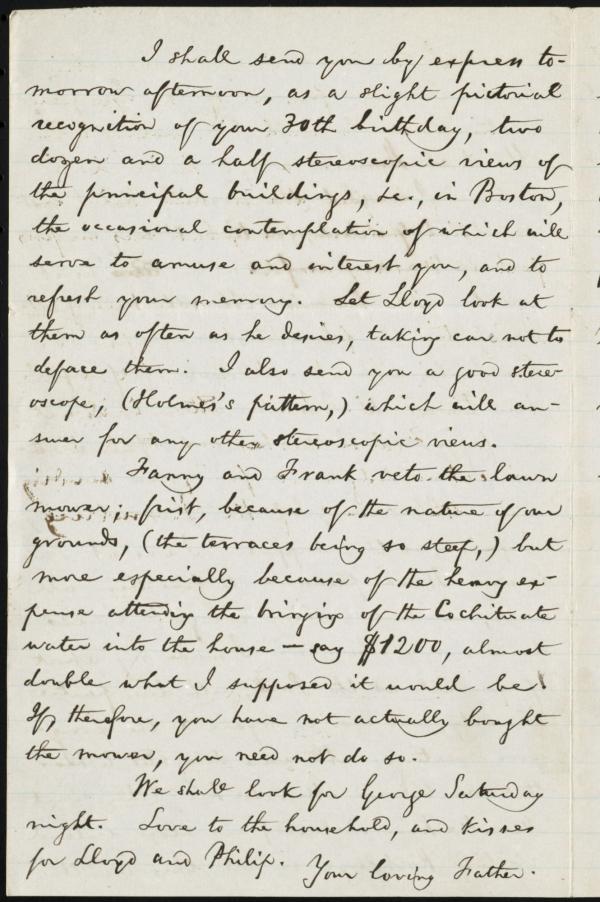 I shall send you by express to-
morrow afternoon, as a slight pictorial
recognition of your 30th birthday, two
dozen and a half stereoscopic views of
the principal buildings, &c., in Boston,
the occasional contemplation of which will
serve to amuse and interest you, and to
refresh your memory. Let Lloyd look at
them as often as he desires, taking care not to
deface them. I also send you a good stere-
oscope, (Holmes's pattern,) which will an-
swer for any other stereoscopic views.
Fanny and Frank veto the lawn
mower; first, because of the nature of our
grounds, (the terraces being so steep,) but
more especially because of the heavy ex-
pense attending the bringing of the Cochituate
water into the house — say $1200, almost
double what I supposed it would be.
If, therefore, you have not actually bought
the mower, you need not do so.
We shall look for George Saturday
night. Love to the household, and kisses
for Lloyd and Philip. Your loving Father.